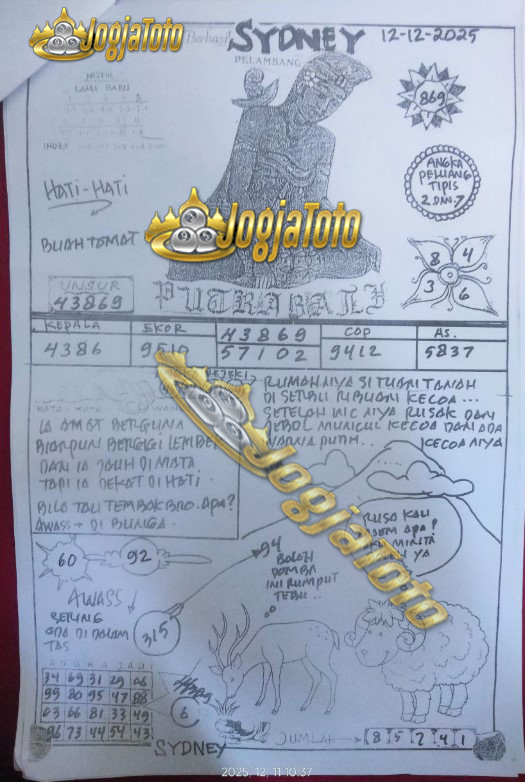 JogjaToto
Berhasil
SYDNEY
12-12-2025
PELAMBANG
MISTIK
LAMA - BARU
INDEX
869
HATI-HATI
ANGKA
PELUANG
TIPIS
2 DAN 7
JogjaToto
BUAH TOMAT
8 4
3 6
UNSUR
43869
PUTRA BALI
KEPALA EKOR 43869 COP AS.
4386 9510 57102 9412 5837
RUMAHNYA SI TUAN TANAH
DI SERBU RIBUAN KECOA...
SETELAH WC NYA RUSAK DAN
JEBOL MUNCUL KECOA DAN ADA
WARNA PUTIH.. KECOANYA
IA AMAT BERGUNA
BIARPUN BERGIGI LEMBEK
DAN IA JAUH DI MATA
TAPI IA DEKAT DI HATI.
BILO TAU TEMBAK BRO. APA?
AWASS → DI BUNGA.
JogjaToto
RUSA KALI
YA
60 92
94
BOLEH
DOMBA
INI RUMPUT
TEBU..
AWASS
BERING
ADA DI DALAM
TAS
315
ANGKA JADI
34 69 31 29 06
99 80 95 47 88
03 66 81 33 49
96 73 44 54 43
6
SYDNEY
JUMLAH → 8 5 7 4 1
2025. 12. 11 10:37